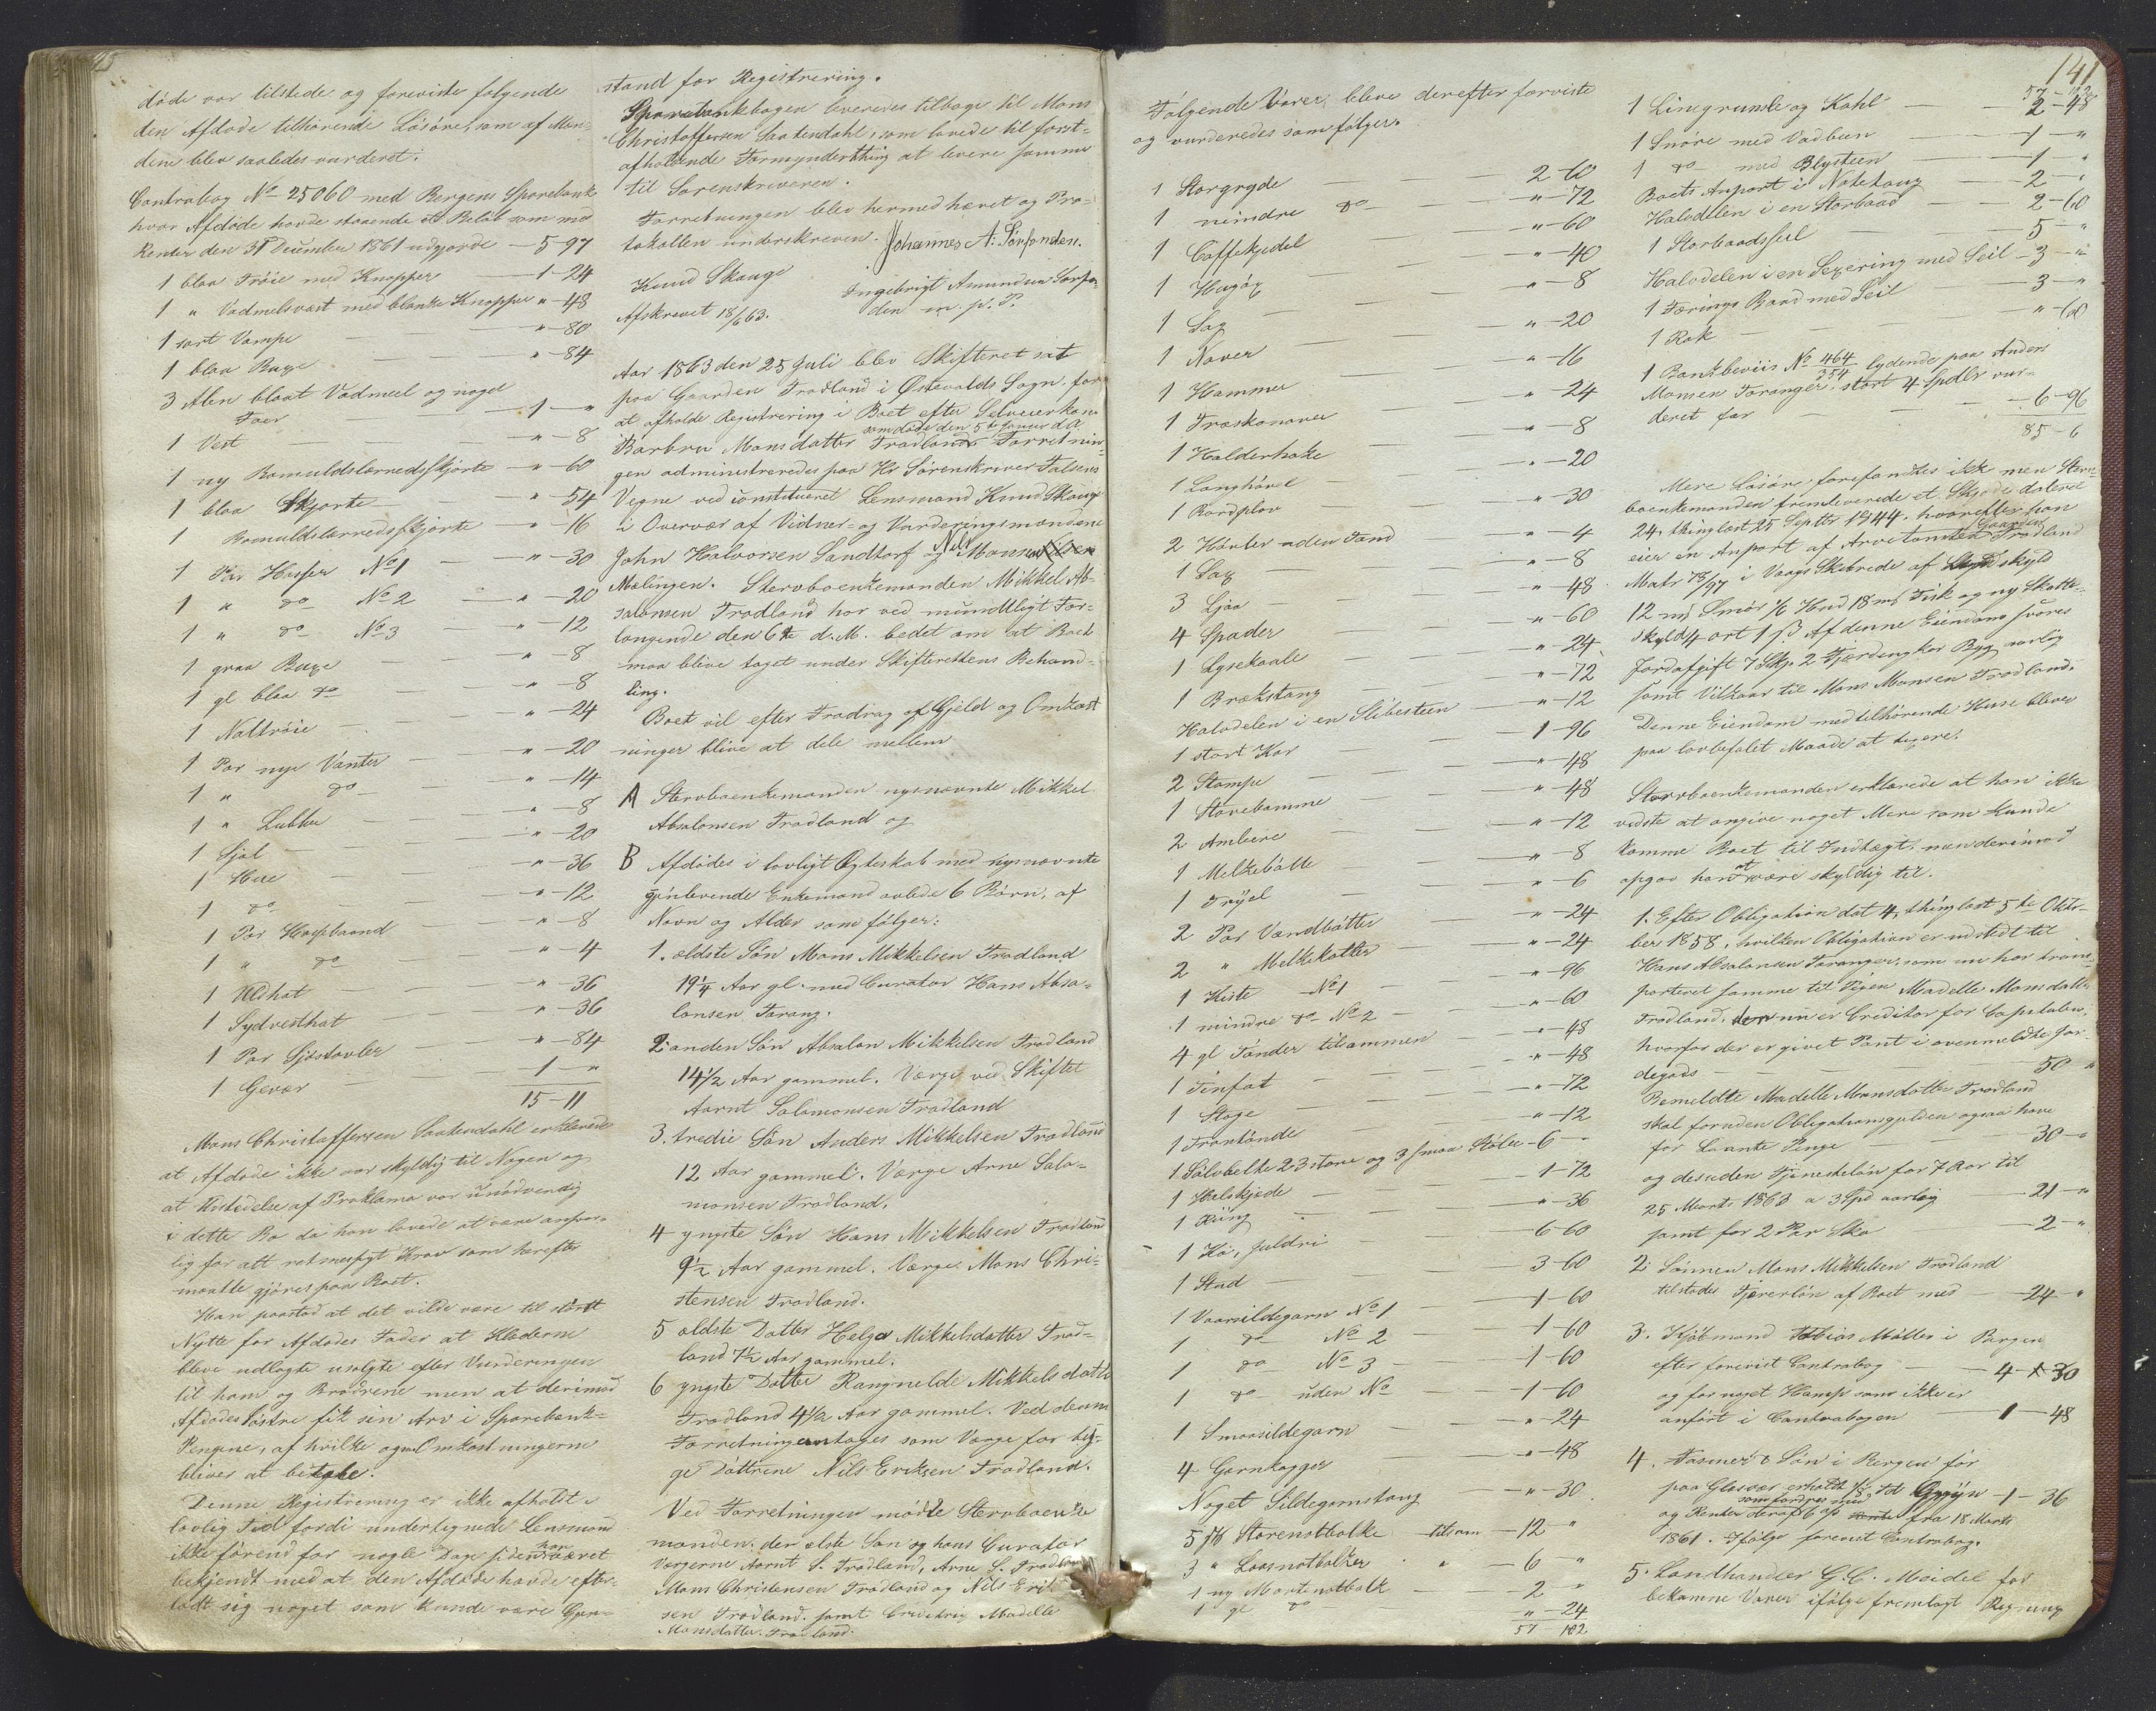 døde var tilstede og foreviste følgende
den Afdøde tilhørende Løsøre, som af Mæn-
dene blev saaledes vurderet:
Contrabog No 25060 med Bergens Sparebank
hvor Afdøde havde staaende et Beløb som med
Renter den 31 December 1861 udgjorde — 5-97
1 blaa Trøie med Knapper — 1-24
1 " Vadmelsvest med blanke Knapper " - 48
1 sort Vampe — " - 80
1 blaa Buxe — " - 84
3 Alen blaat Vadmeel og noget
Foer — 1 - "
1 Vest — " - 8
1 ny Bomuldslærredsskjorte — " - 60
1 blaa Skjorte — " - 54
1 Bomuldslærredsskjorte — " - 16
1 Par Hosser No 1 — " - 30
1 " do No 2 — " - 20
1 " do No 3 — " - 12
1 graa Buxe — " - 8
1 gl blaa do — " - 8
1 Nattrøie — " - 24
1 Par nye Vanter — " - 20
1 " do — " - 14
1 " Lubber — " - 8
1 Sjal — " - 20
1 Hue — " - 36
1 do — " - 12
1 Par Hosebaand — " - 8
1 " do — " - 4
1 Uldhat — " - 36
1 Sydvesthat — " - 36
1 Par Sjøstøvler — " - 84
1 Gevær — 1 - "
15-11
Mons Christoffersen Saatendahl erklærede
at Afdøde ikke var skyldig til Nogen og
at Udstedelse af Proklama var unødvendig
i dette Bo da han lovede at være ansvar-
lig for alt retmæssigt Krav som herefter
maatte gjøres paa Boet.
Han paastod at det vilde være til størst
Nytte for Afdødes Fader at Klæderne
bleve udlagte usolgte efter Vurderingen
til ham og Brødrene men at derimod
Afdødes Søstre fik sin Arv i Sparebank-
Pengene, af hvilke ogsaa Omkostningerne
bliver at betale.
Denne Registrering er ikke afholdt i
lovlig Tid fordi undertegnede Lensmand
ikke førend for nogle Dage siden har været
bekjendt med at den Afdøde havde efter-
ladt sig noget som kunde være Gjen-
stand for Registrering.
Sparebankbogen leveredes tilbage til Mons
Christoffersen Saatendahl, som lovede til først-
afholdende Formynderthing at levere samme
til Sorenskriveren.
Forretningen blev hermed hævet og Pro-
tokollen underskreven. Johannes A: Sørfonden.
Knud Skauge Ingebrigt Amundsen Sørfon
Afskrevet 18/6 63. den m. p. P.
Aar 1863 den 25 Juli blev Skifteret sat
paa Gaarden Trodland i Østevolds Sogn for
at afholde Registrering i Boet efter Selveierkone
som døde den 5te Januar d.A.
Barbru Monsdatter Trodland. Forretnin-
gen administreredes paa Hr Sorenskriver Falsens
Vegne ved constitueret Lensmand Knud Skauge
i Overvær af Vidner- og Vurderingsmændene
John Halvorsen Sandtorf og Nils Monsen
Mælingen. Stervboenkemanden Mikkel Ab-
salonsen Trodland har ved mundtligt For-
langende den 6te d. M. bedet om at Boet
maa blive taget under Skifterettens Behand-
ling.
Boet vil efter Fradrag af Gjeld og Omkost-
ninger blive at dele mellem
A Stervboenkemanden nysnævnte Mikkel
Absalonsen Trodland og
B Afdødes i lovligt Ægteskab med nysnævnte
gjenlevende Enkemand avlede 6 Børn, af
Navn og Alder som følger:
1. ældste Søn Mons Mikkelsen Trodland
19 1/4 Aar gl. med Curator Hans Absa-
lonsen Torang.
2. anden Søn Absalon Mikkelsen Trodland
14 1/2 Aar gammel. Værge ved Skiftet
Aarnt Salamonsen Trodland
3. tredie Søn Anders Mikkelsen Trodland
12 Aar gammel. Værge Arne Sala-
monsen Trodland.
4 yngste Søn Hans Mikkelsen Trodland
9 1/2 Aar gammel. Værge Mons Chri-
stensen Trodland.
5 ældste Datter Helga Mikkelsdatter Trod-
land 7 1/2 Aar gammel.
6 yngste Datter Rangnelde Mikkelsdatter
Trodland 4 1/2 Aar gammel. Ved denne
Forretning antages som Værge for beg-
ge Døttrene Nils Eriksen Trodland.
Ved Forretningen mødte Stervboenke
manden, den ældste Søn og hans Curator
Værgerne Aarnt S. Trodland, Arne S. Trodland
Mons Christensen Trodland og Nils Erik
sen Trodland. samt Creditrix Madelle
Monsdatter Trodland.
Følgende Varer bleve derefter foreviste
og vurderedes som følger.
1 Storgryde — 2-60
1 mindre do — " - 72
1 Caffekjedel — " - 60
1 Hugøx — " - 40
1 Sag — " - 8
1 Naver — " - 20
1 Hammer — " - 16
1 Træskonaver — " - 24
1 Halderhake — " - 8
1 Langhøvel — " - 20
1 Bordplov — " - 30
2 Høvler uden Tand — " - 4
1 Sag — " - 8
3 Ljaa — " - 48
4 Spader — " - 60
1 Lysekaale — " - 24
1 Brækstang — " - 72
Halvdelen i en Slibesteen — " - 12
1 stort Kar — 1-96
2 Stampe — " - 48
1 Stavebamme — " - 48
2 Ambere — " - 12
1 Melkebøtte — " - 8
1 Tryel — " - 6
2 Par Vandbøtter — " - 24
2 " Melkekoller — " - 24
1 Kiste No 1 — " - 96
1 mindre do No 2 — " - 60
4 gl Tønder tilsammen — " - 48
1 Tinfat — " - 48
1 Stage — " - 72
1 Trantønde — " - 12
1 Sølvbelte 23 store og 3 smaa Støler - 6 - "
1 Halskjæde — 1-72
1 Ring — " - 36
1 Ko, Juldri — 6-60
1 Stud — 3-60
1 Vaarsildegarn No 1 — 1-60
1 do No 2 — 1-60
1 do No 3 — 1-60
1 do uden No — 1-60
1 Smaasildegarn — " - 24
4 Garnkagger — " - 48
Noget Sildegarnstoug — " - 30
5 Stk Storenotbolke tilsam — 12 - "
3 " Laasnotbolker " — 6 - "
1 ny Mortnotbolk — 2 - "
1 gl do — " - 24
57-102
141
57-102
1 Linegrunde og Kahl — 2-48
1 Snøre med Vadbeen — 1 - "
1 do med Blysteen — 1 - "
Boets Anport i Notetoug — 2 - "
Halvdelen i en Storbaad — 2-60
1 Storbaadsseil — 5 - "
Halvdelen i en Sexering med Seil - 3 - "
1 Færings Baad med Seil — 3 - "
1 Rok — " - 60
1 Bankbeviis No 464/254 lydende paa Anders
Monsen Toranger. stort 4 Spdlr vur-
deret for — 6-96
85-6
Mere Løsøre forefandtes ikke men Sterv-
boenkemanden fremleverede et Skjøde dateret
24, thinglæst 25 Septbr 1844. hvorefter han
eier en Anport af Arvetomten Gaarden Trodland
Matr 78/97 i Vaags Skibrede af skyld
12 mrk Smør 1/6 Hud 18 mrk Fisk og ny Skatte-
skyld 4 ort 1 ß Af denne Eiendom svares
Jordafgift 7 Skp. 2 Fjærdingkar Byg aarlig
samt Vilkaar til Mons Monsen Trodland.
Denne Eiendom med tilhørende Huse bliver
paa lovbefalet Maade at taxere.
Stervboenkemanden erklærede at han ikke
vidste at angive noget Mere som kunde
komme Boet til Indtægt, men derimod
opgav han at være skyldig til.
1. Efter Obligation dat 4, thinglæst 5te Okto-
ber 1858, hvilken Obligation er udstedt til
Hans Absalonsen Toranger, som nu har trans-
porteret samme til Pigen Madelle Monsdatter
Trodland. der nu er Creditor for Capitalen,
hvorfor der er givet Pant i ovenmeldte Jor-
degods — 50 "
Bemeldte Madelle Monsdatter Trodland
skal foruden Obligationsgjælden ogsaa have
for Laante Penge — 30 - "
og desuden Tjenesteløn for 7 Aar til
25 Marts 1863 a 3 Spd aarlig — 21 - "
samt for 2 Par Sko — 2 - "
2. Sønnen Mons Mikkelsen Trodland
tilstodes Tjenerløn af Boet med — 24 - "
3. Kjøbmand Tobias Møller i Bergen
efter forevist Contrabog — 4 - 30
og for noget Hamp som ikke er
anført i Contrabogen — 1 - 48
4. Fasmer & Søn i Bergen for
paa Glasvær erholdt 1/2 Td Gryn - 1 - 36
og Renter deraf som fordres med 6 % fra 18 Marts
1861. Ifølge forevist Contrabog.
5. Landhandler G. C. Meidel for
bekomne Varer ifølge fremlagt Regning